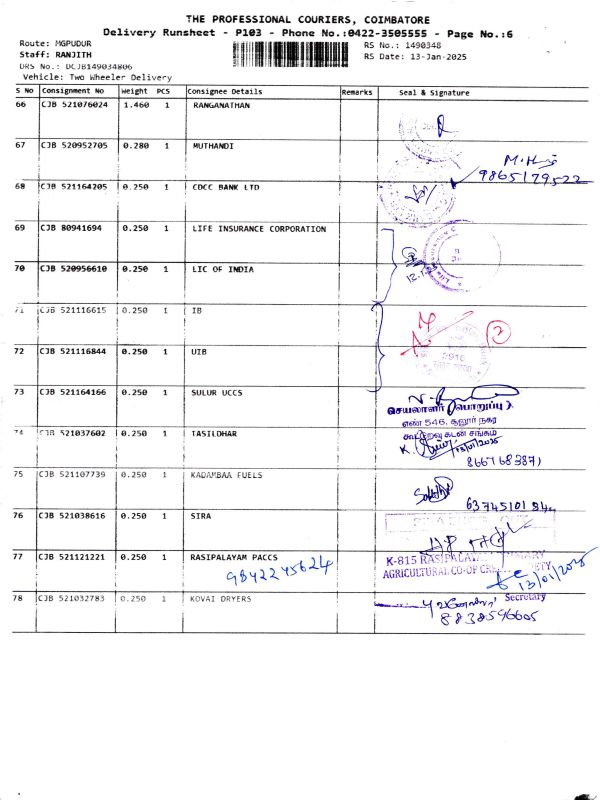 THE PROFESSIONAL COURIERS, COIMBATORE
Delivery Runsheet - P103 - Phone No.:0422-3505555 - Page No.:6
Route: MGPUDUR RS No.: 1490348
Staff: RANJITH RS Date: 13-Jan-2025
DRS No.: DCJB149034806
Vehicle: Two Wheeler Delivery
S No Consignment No Weight PCS Consignee Details Remarks Seal & Signature
66 CJB 521076024 1.460 1 RANGANATHAN
67 CJB 520952705 0.280 1 MUTHANDI
9865179522
68 CJB 521164205 0.250 1 CDCC BANK LTD
69 CJB 80941694 0.250 1 LIFE INSURANCE CORPORATION
70 CJB 520956610 0.250 1 LIC OF INDIA
71 CJB 521116615 0.250 1 IB
2
72 CJB 521116844 0.250 1 UIB
2916
73 CJB 521164166 0.250 1 SULUR UCCS
செயலாளர் (பொறுப்பு)
எண் 546, சூலூர் நகர
கூட்டுறவு கடன் சங்கம்
74 CJB 521037602 0.250 1 TASILDHAR
13/01/2025
75 CJB 521107739 0.250 1 KADAMBAA FUELS
76 CJB 521038616 0.250 1 SIRA
77 CJB 521121221 0.250 1 RASIPALAYAM PACCS
9842245624
K-815 RASIPALAYAM
AGRICULTURAL CO-OP
13/01/2025
Secretary
78 CJB 521032783 0.250 1 KOVAI DRYERS
8838596605